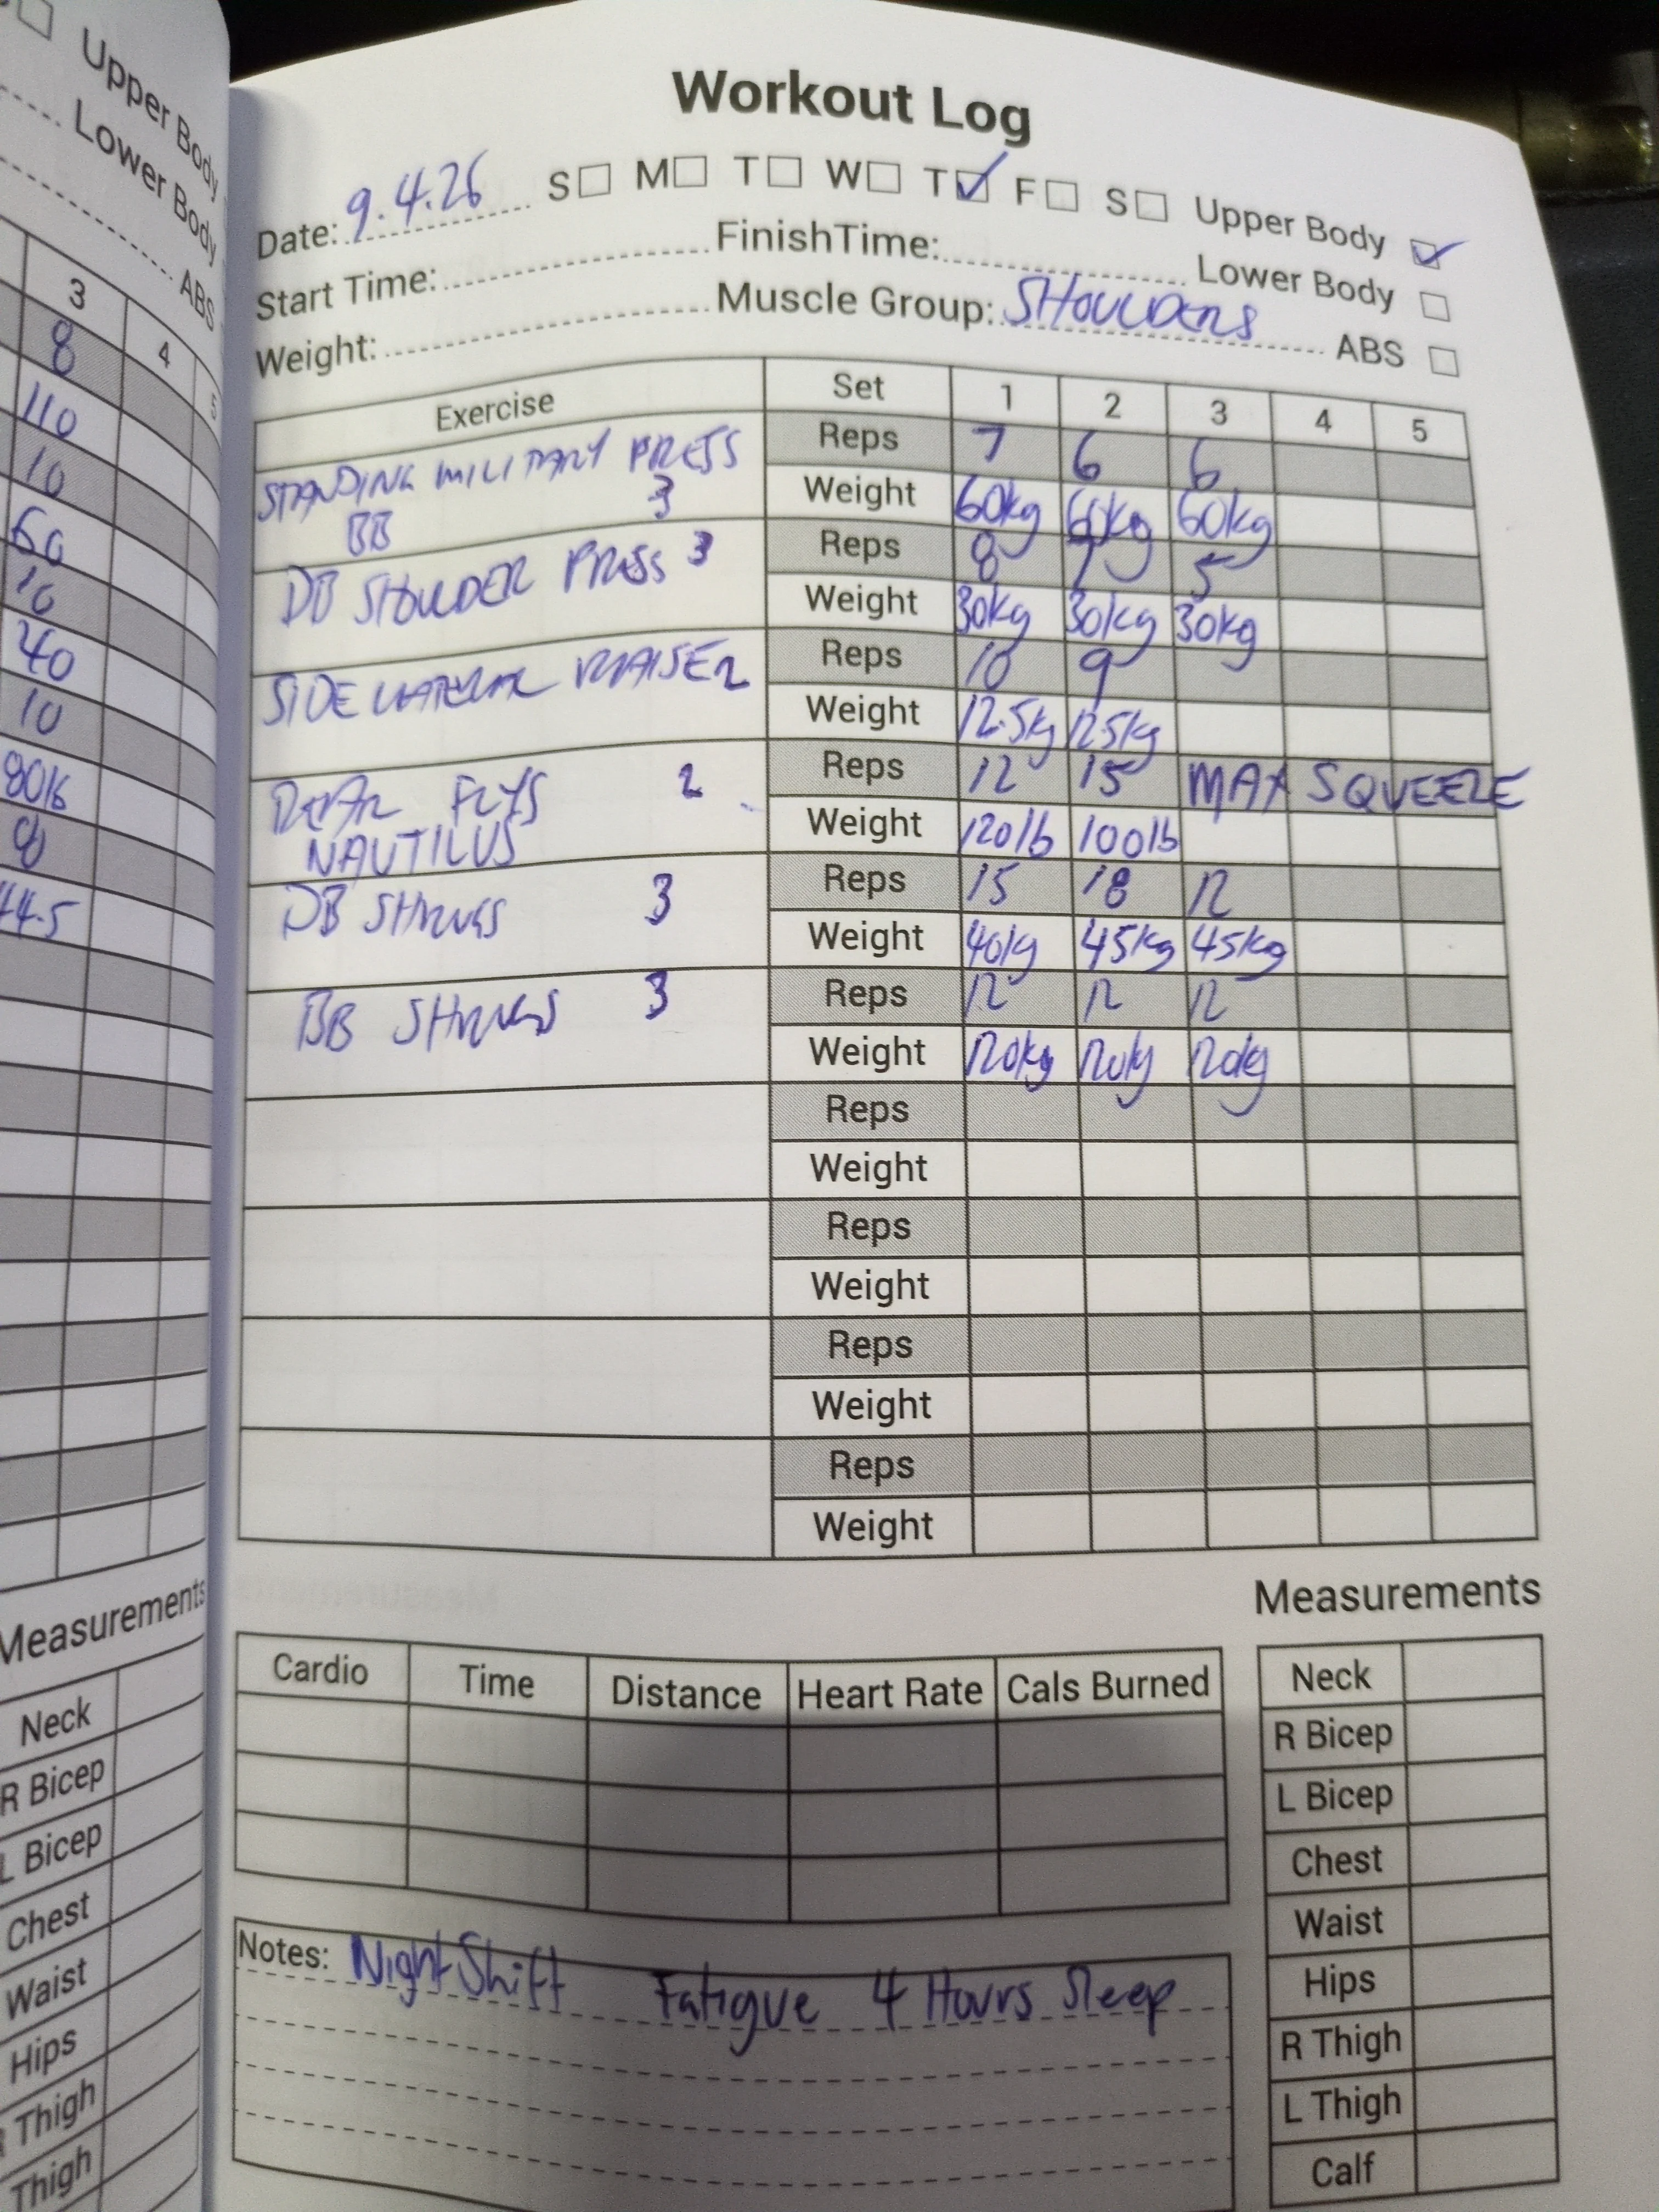 Upper Body
Lower Body
ABS
3 4 5
8
110
10
60
10
40
10
80lb
8
44.5
Measurements
Neck
R Bicep
L Bicep
Chest
Waist
Hips
Thigh
Thigh
Workout Log
Date: 9.4.26 S M T W T F S Upper Body
Start Time: FinishTime: Lower Body
Weight: Muscle Group: SHOULDERS ABS
Exercise Set 1 2 3 4 5
STANDING MILITARY PRESS Reps 7 6 6
BB 3 Weight 60kg 60kg 60kg
DB SHOULDER PRESS 3 Reps 8 7 5
Weight 30kg 30kg 30kg
SIDE LATERAL RAISE 2 Reps 10 9
Weight 12.5kg 12.5kg
REAR FLYS 2 Reps 12 15 MAX SQUEEZE
NAUTILUS Weight 120lb 100lb
DB SHRUGS 3 Reps 15 18 12
Weight 40kg 45kg 45kg
BB SHRUGS 3 Reps 12 12 12
Weight 120kg 120kg 120kg
Reps
Weight
Reps
Weight
Reps
Weight
Reps
Weight
Measurements
Cardio Time Distance Heart Rate Cals Burned
Neck
R Bicep
L Bicep
Chest
Waist
Hips
R Thigh
L Thigh
Calf
Notes: Night Shift Fatigue 4 Hours Sleep